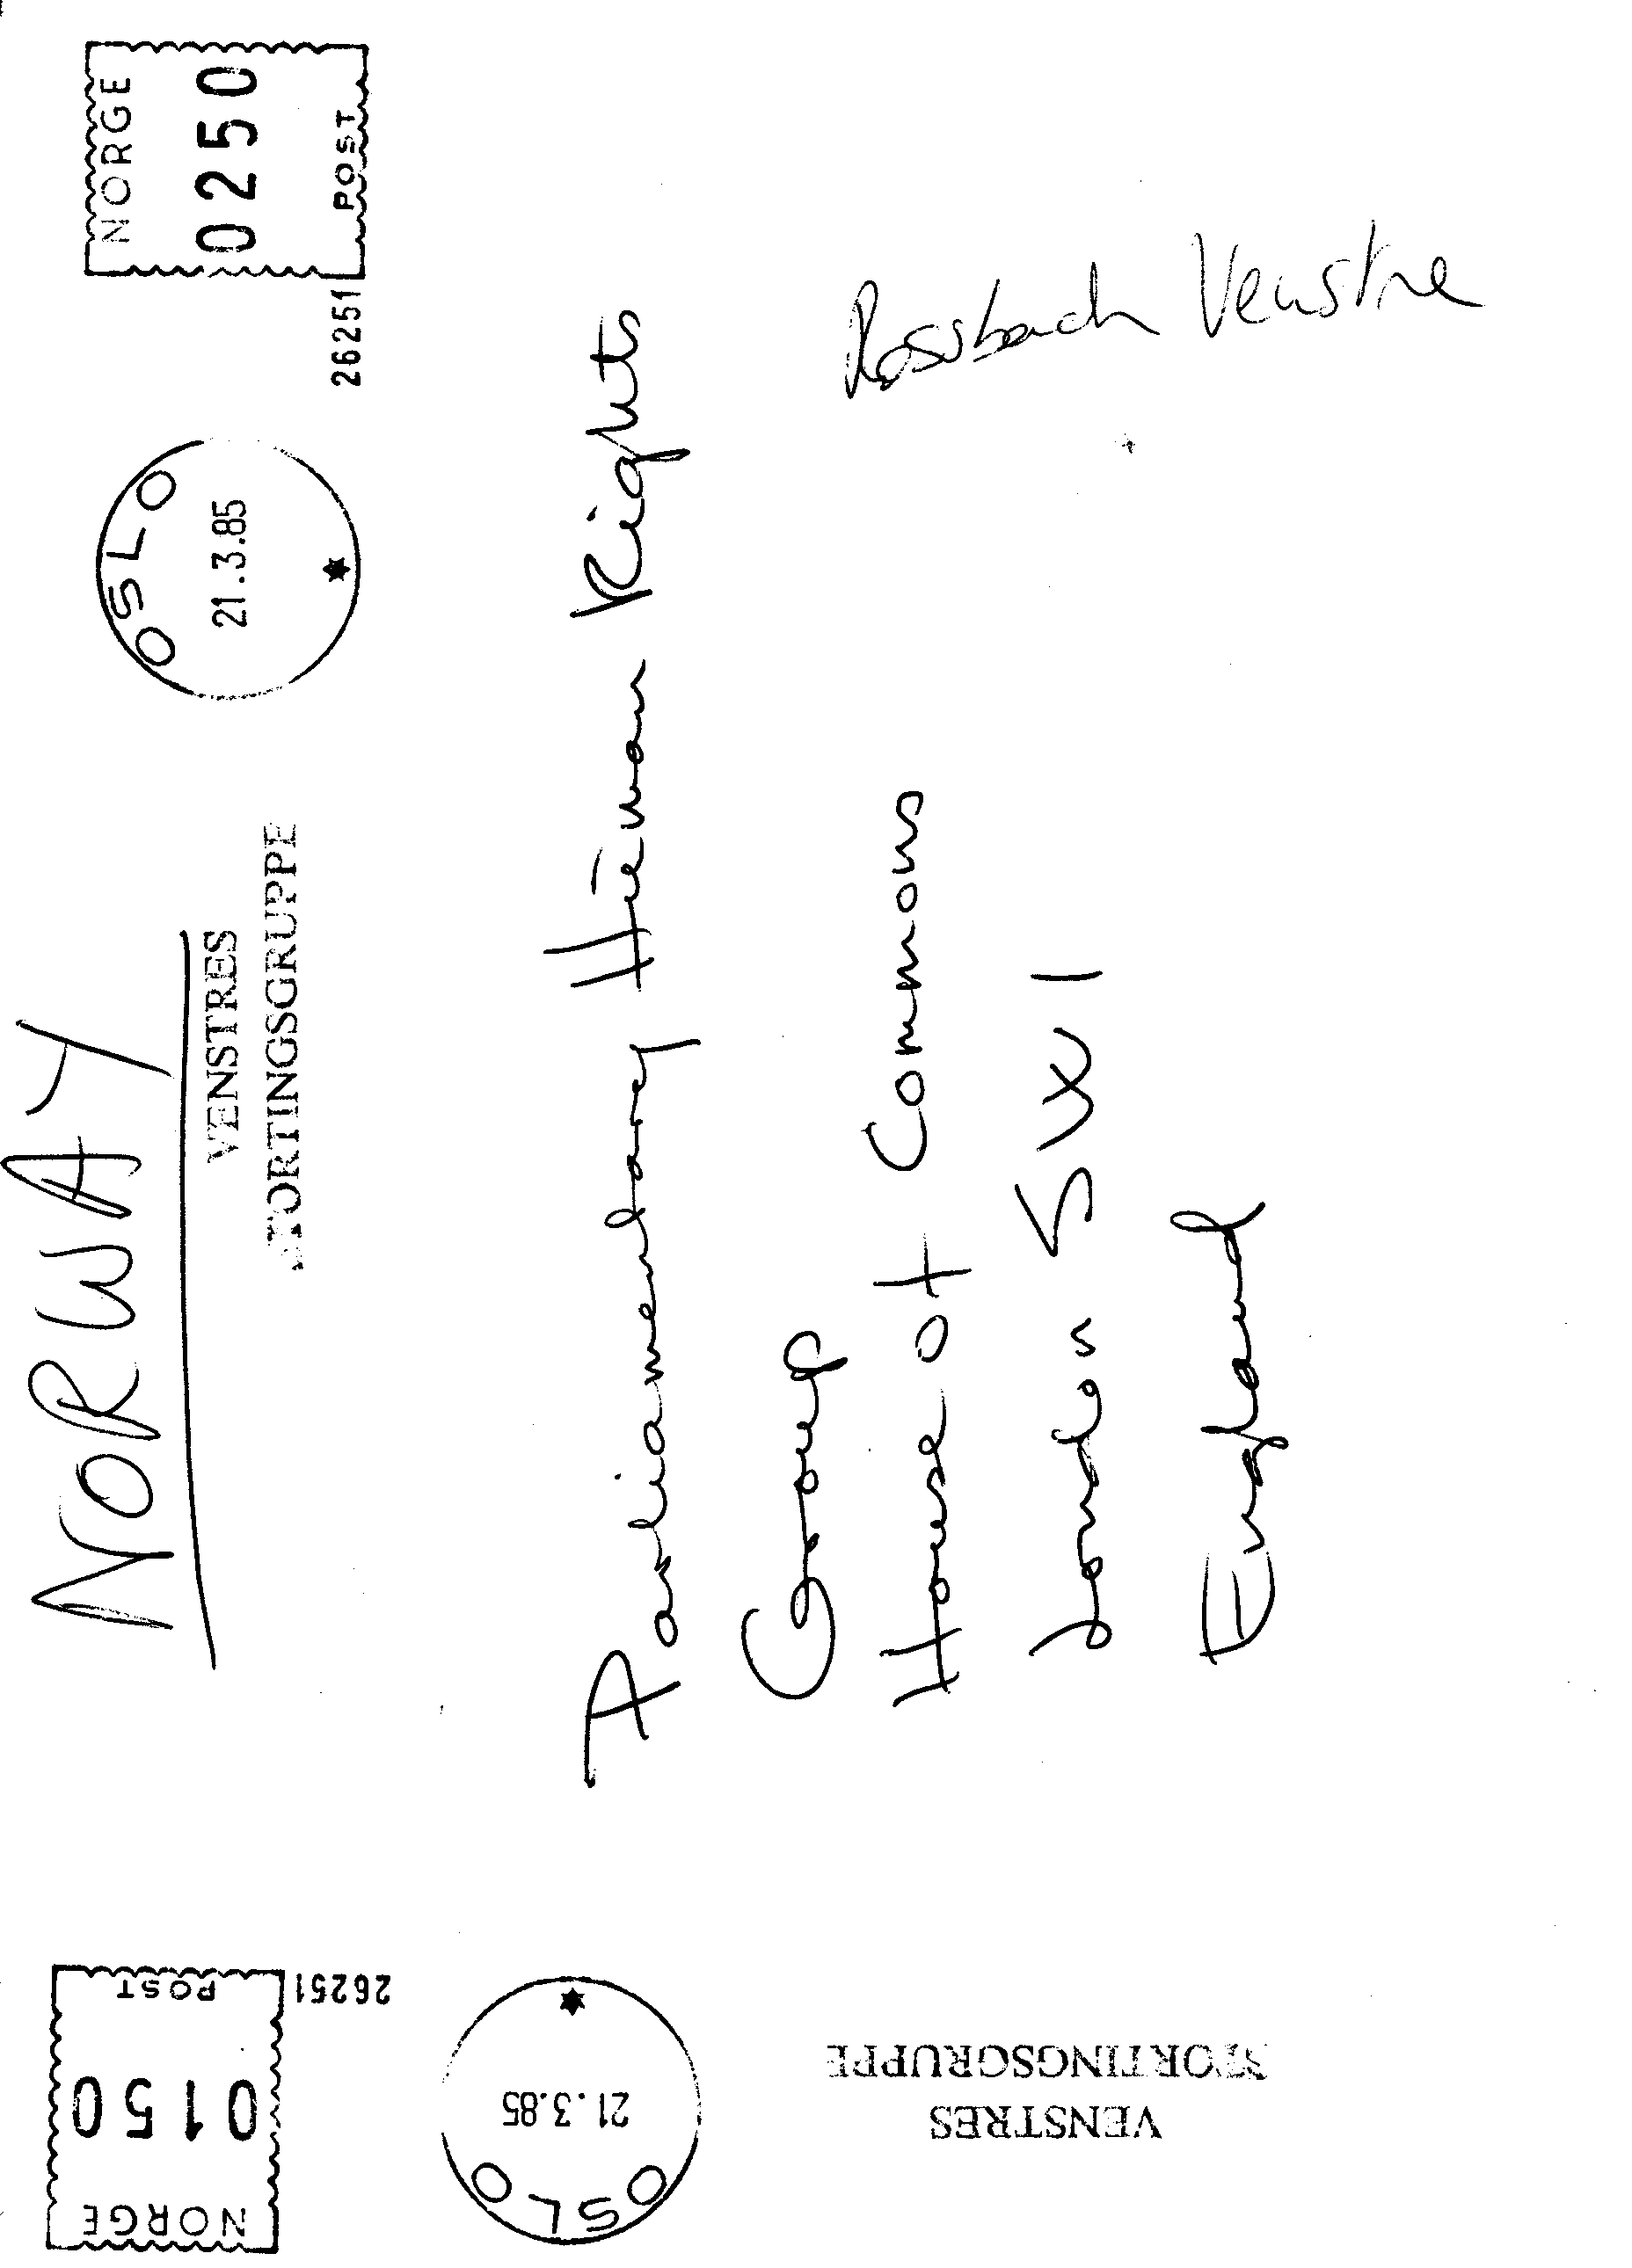 NORWAY
VENSTRES
STORTINGSGRUPPE
OSLO
21.3.85
NORGE
0250
26251 POST
Parliamentary Human Rights
Group
House of Commons
London SW1
England
Rossbach Venstre
NORGE
0150
POST
26251
OSLO
21.3.85
VENSTRES
STORTINGSGRUPPE